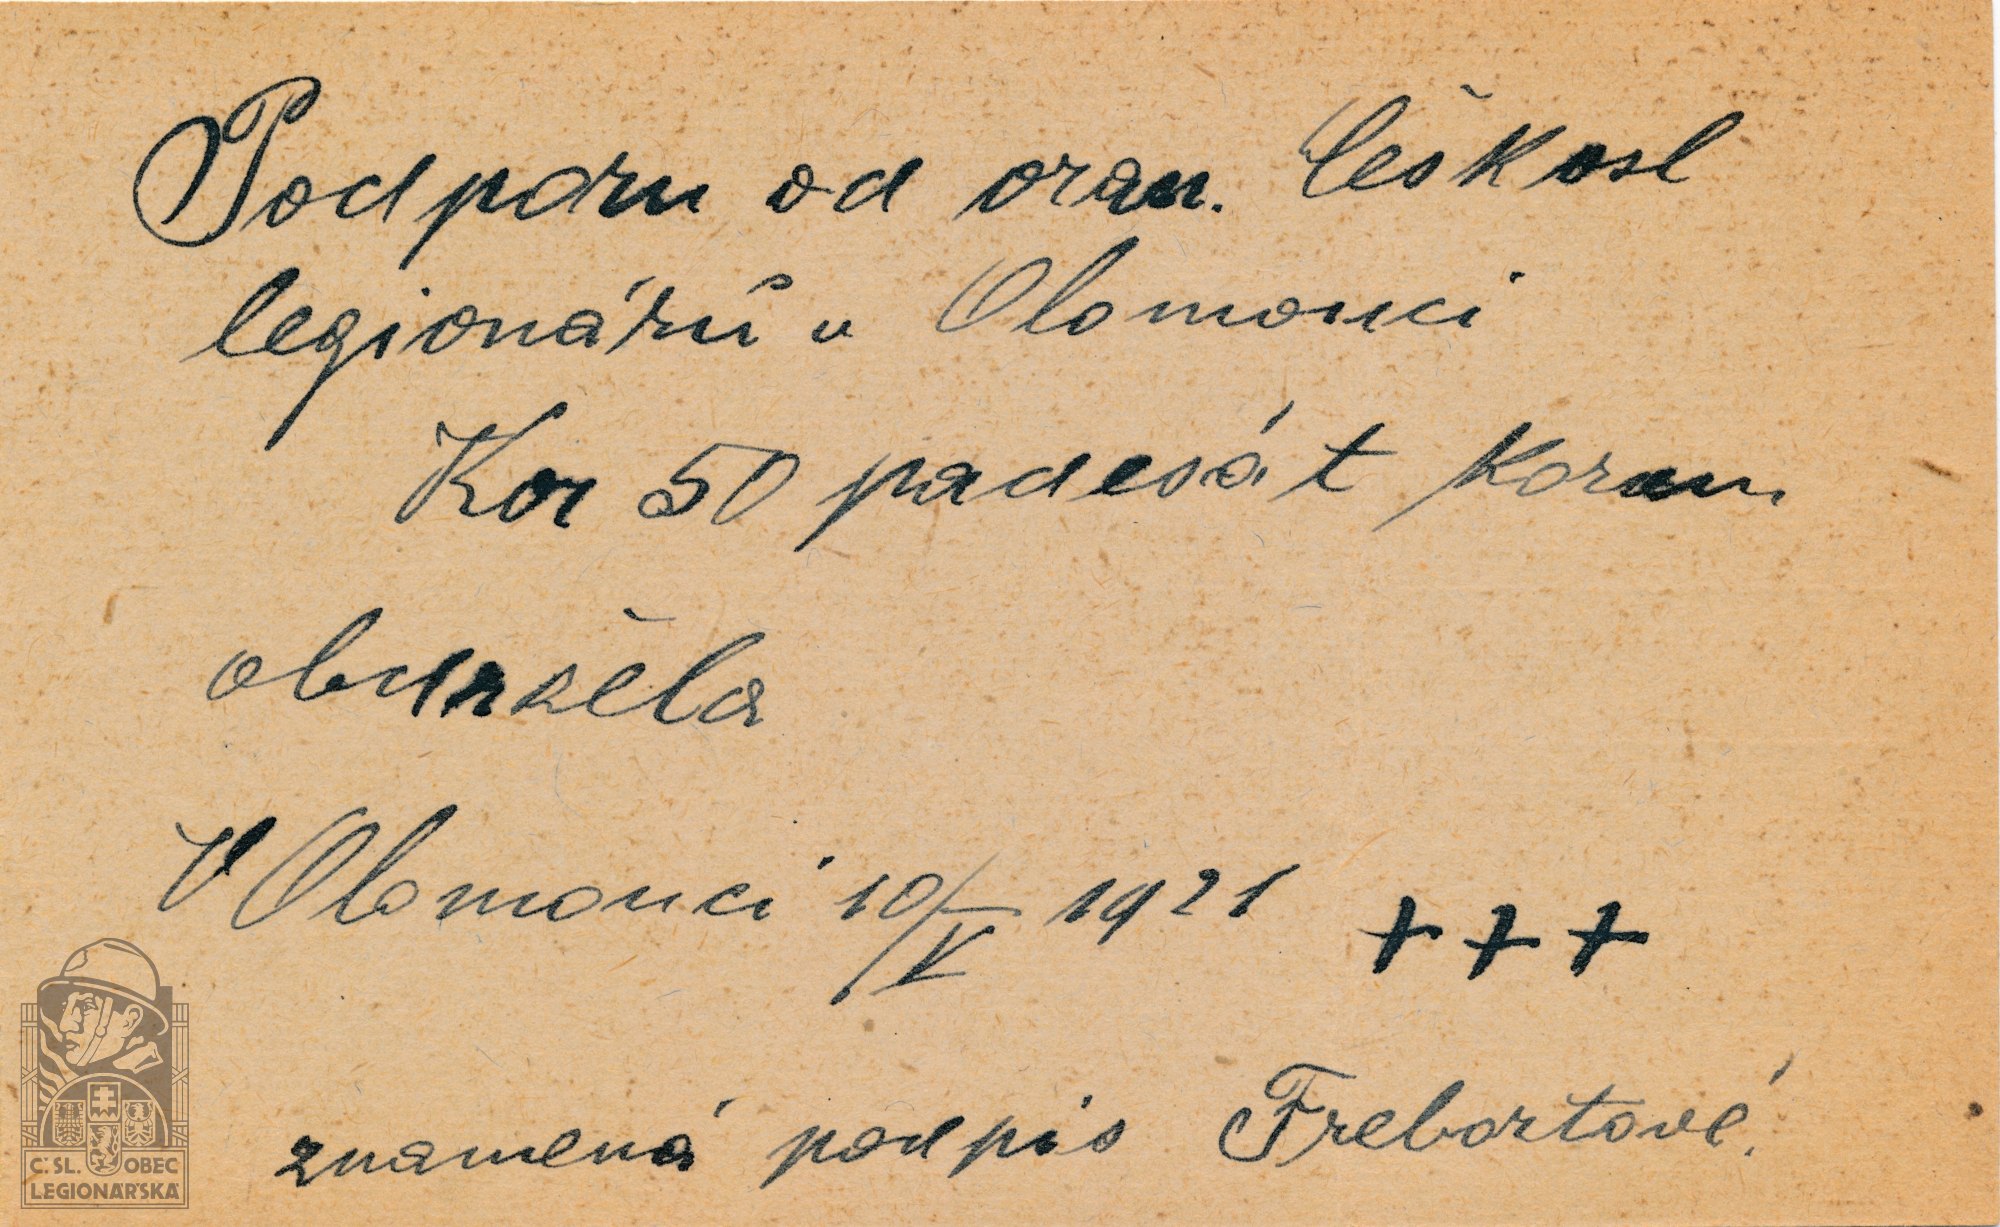 Podporu od organ. Českosl
legionářů v Olomouci
Kor 50 padesát Korun
obdržela
V Olomouci 10/V 1921 +++
znamená podpis Frebortové.
Č.SL. OBEC
LEGIONÁŘSKÁ